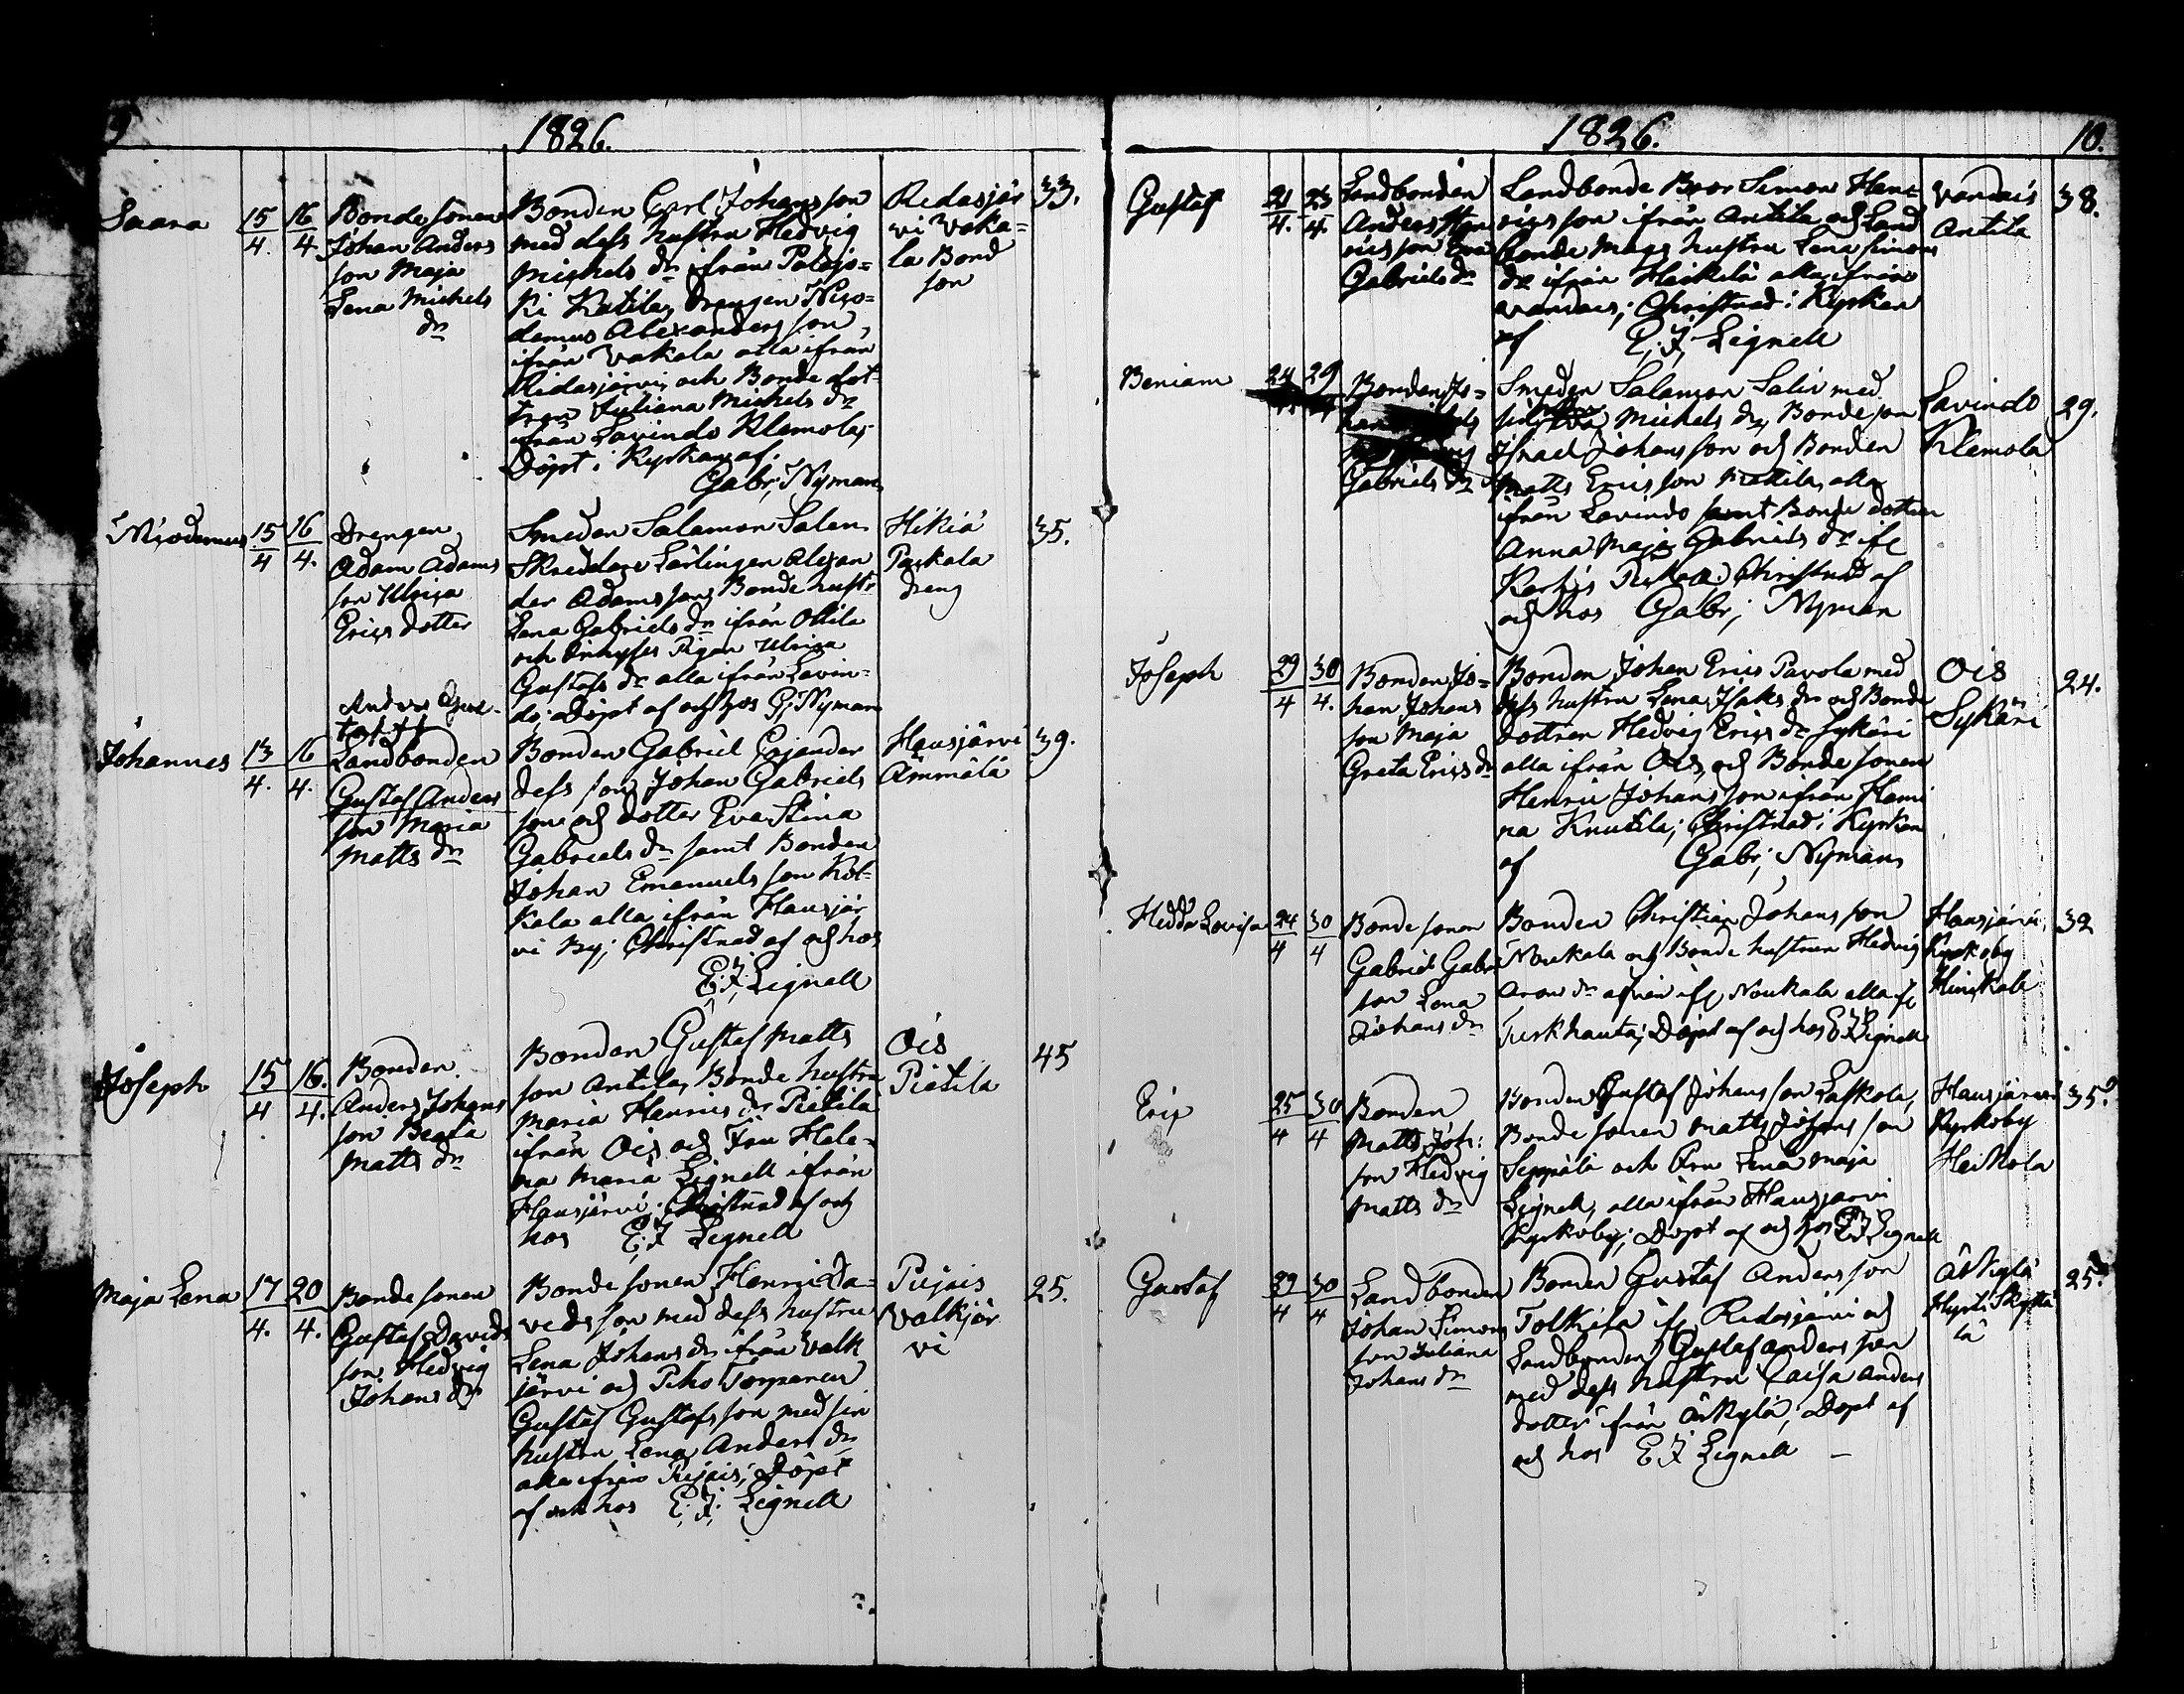 9
1826.
Saara
15
4.
16
4
Bonde sonen
Johan Anders
son Maja
Lena Michels
dr
Bonden Carl Johansson
med dess hustru Hedvig
Michels dr ifrån Palojo=
ki Katila, Drengen Nico=
demus Alexandersson,
ifrån Vakala alla ifrån
Ridasjärvi, och Bonde dot=
tren Juliana Michels dr
ifrån Lavindo Klemola;
Döpt i Kyrkan af
Gabr; Nyman
Ridasjär
vi Vaka=
la Bond
son
33.
Nicodemus
15
4
16
4.
Drengen
Adam Adams
son Ulrica
Erics dotter
Smeden Salamon Salen
Skreddare Lärlingen Alexan
der Adamsson, Bonde hustr
Lena Gabriels dr ifrån Ottila
och Inhyses Pigan Ulrica
Gustafs dr alla ifrån Lavin=
do; Döpt af och hos G; Nyman
Hikiä
Paskala
Dreng
35.
Anders
Johannes
13
4.
16
4.
Landbonden
Gustaf Anders
son Maria
Matts dr
Bonden Gabriel Cajander
dess son Johan Gabriels
son och dotter Eva Stina
Gabriels dr samt Bonden
Johan Emanuels son Kol=
kala alla ifrån Hausjär
vi By; Christnad af och hos
E; J; Lignell
Hausjärvi
Ämmälä
39.
Joseph
15
4
16.
4.
Bonden
Anders Johans
son Beata
Matts dr
Bonden Gustaf Matts
son Antila, Bonde hustru
Maria Henrics dr Pietila
ifrån Ois och Fru Hele=
na Maria Lignell ifrån
Hausjärvi; Christnad af och
hos E; J Lignell
Ois
Pietila
45
Maja Lena
17
4.
20
4.
Bonde sonen
Gustaf Davids
son Hedvig
Johans dr
Bonde sonen Henric Da=
vidsson med dess hustru
Lena Johans dr ifrån Valk
järvi och Torparen
Gustaf Gustafsson med sin
hustru Lena Anders dr
alla ifrån Pujais; Döpt
af och hos E; J; Lignell
Pujais
Valkjär
vi
25.
1826.
10.
Gustaf
21
4.
23
4.
Landbonden
Anders Hen
rics son Eva
Gabriels dr
Landbonde Bror Simon Hen=
rics son ifrån Antila och Land
bonde Mags hustru Lena Simons
dr ifrån Heikilä alla ifrån
Vandais; Christnad i Kyrkan
af E; J; Lignell
Vandais
Antila
38.
Beniam
24
29
Bonden Jo=
Gabriels dr
Smeden Salamon Salin med
Michels dr, Bonde son
Israel Johansson och Bonden
Matts Ericsson Mattila, alla
ifrån Lavindo samt Bonde dottren
Anna Maja Gabriels dr if
Karhis Christnad af
och hos Gabr; Nyman
Lavindo
Klemola
29.
Joseph
29
4
30
4.
Bonden Jo=
han Johans
son Maja
Greta Erics dr
Bonden Johan Erics Pavola med
dess hustru Lena Isaks dr och Bonde
dottren Hedvig Erics dr Sykäri
alla ifrån Ois, och Bonde sonen
Henric Johansson ifrån Hami
na Knutila; Christnad i Kyrkan
af Gabr; Nyman
Ois
Sykäri
24.
Hedda Lovisa
24
4
30
4
Bonde sonen
Gabriel Gabri
son Lena
Johans dr
Bonden Christian Johansson
Noukala och Bonde hustrun Hedvig
if Noukala alla if
Turkhauta; Döpt af och hos E J Lignell
Hausjärvi
Kyrkoby
Hinskala
32
Eric
25
4
30
4
Bonden
Matts Joh:
son Hedvig
Matts dr
Bonden Gustaf Johansson Laskola,
Bonde sonen Matts Johansson
Seppälä och Fru Lena Maja
Lignell, alla ifrån Hausjarvi
Kyrkoby; Döpt af och hos E J Lignell
Hausjärvi
Kyrkoby
Heikola
35.
Gustaf
29
4
30
4
Landbonden
Johan Simons
son Juliana
Johans dr
Bonden Gustaf Andersson
Tolkila if Ridasjärvi och
Landbonden Gustaf Andersson
med dess hustru Caisa Anders
dotter ifrån Ärkylä; Döpt af
och hos E J Lignell
Ärkylä
25.